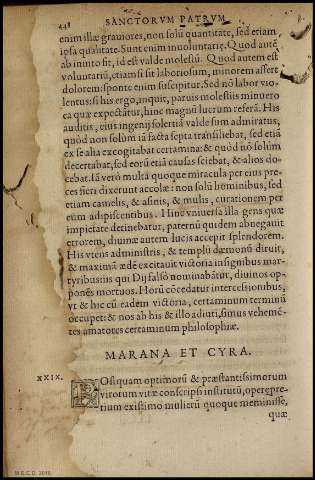 448
SANCTORVM PATRVM
enim illæ grauiores, non solũ quantitate, sed etiam
ipsa qualitate. Sunt enim inuoluntarię. Quod autẽ
ab inuito fit, id est valde molestũ. Quod autem est
voluntariũ, etiamsi sit laboriosum, minorem affert
dolorem: sponte enim suscipitur. Sed nõ labor vio-
lentus: si his ergo, inquit, paruis molestiis minuero
ea quæ expectãtur, hinc magnũ lucrum referã. His
auditis, eius ingenij solertiã valde sum admiratus;
quòd non solùm iã facta septa transiliebat, sed etiã
ex se alia excogitabat certamina: & quòd nõ solùm
decertabat, sed eorũ etiã causas sciebat, & alios do-
cebat. Iã verò multa quoque miracula per eius pre-
ces fieri dixerunt accolæ: non solũ hominibus, sed
etiam camelis, & asinis, & mulis, curationem per
eum adipiscentibus. Hinc vniuersa illa gens quæ
impietate detinebatur, paternũ quidem abnegauit
errorem, diuinæ autem lucis accepit splendorem.
His vtens administris, & templũ dæmonũ diruit,
& maximã ædẽ excitauit victoria insignibus mar-
tyribus: iis qui Dij falsò nominabãtur, diuinos op-
ponẽs mortuos. Horũ cõcedatur intercessionibus,
vt & hic cũ eadem victoria, certaminum terminũ
occupet: & nos ab his & illo adiuti, simus vehemẽ-
tes amatores certaminum philosophiæ.
MARANA ET CYRA.
XXIX.
POstquam optimorũ & præstantissimorum
virorum vitæ conscripsi institutũ, operępre-
tium existimo mulierũ quoque meminisse,
quæ